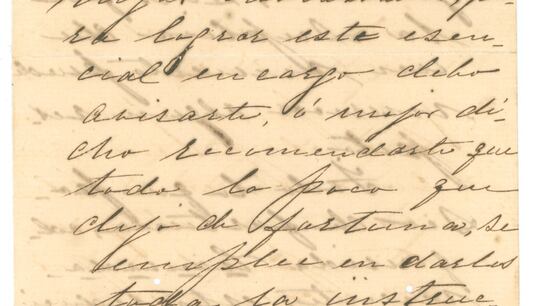 ra lograr este esen-
cial encargo debo
avisarte, ó mejor di-
cho recomendarte que
todo lo poco que
dejo de fortuna, se
emplee en darles
toda la